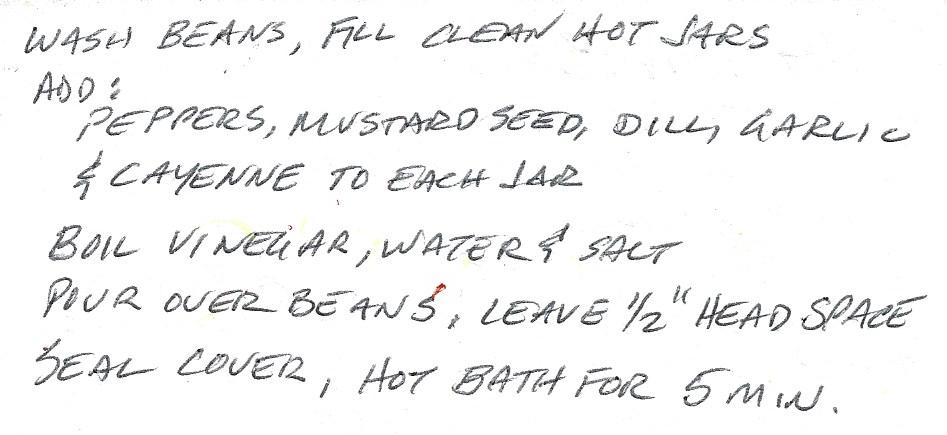 WASH BEANS, FILL CLEAN HOT JARS
ADD:
PEPPERS, MUSTARD SEED, DILL, GARLIC
& CAYENNE TO EACH JAR
BOIL VINEGAR, WATER & SALT
POUR OVER BEANS, LEAVE 1/2" HEAD SPACE
SEAL COVER, HOT BATH FOR 5 MIN.